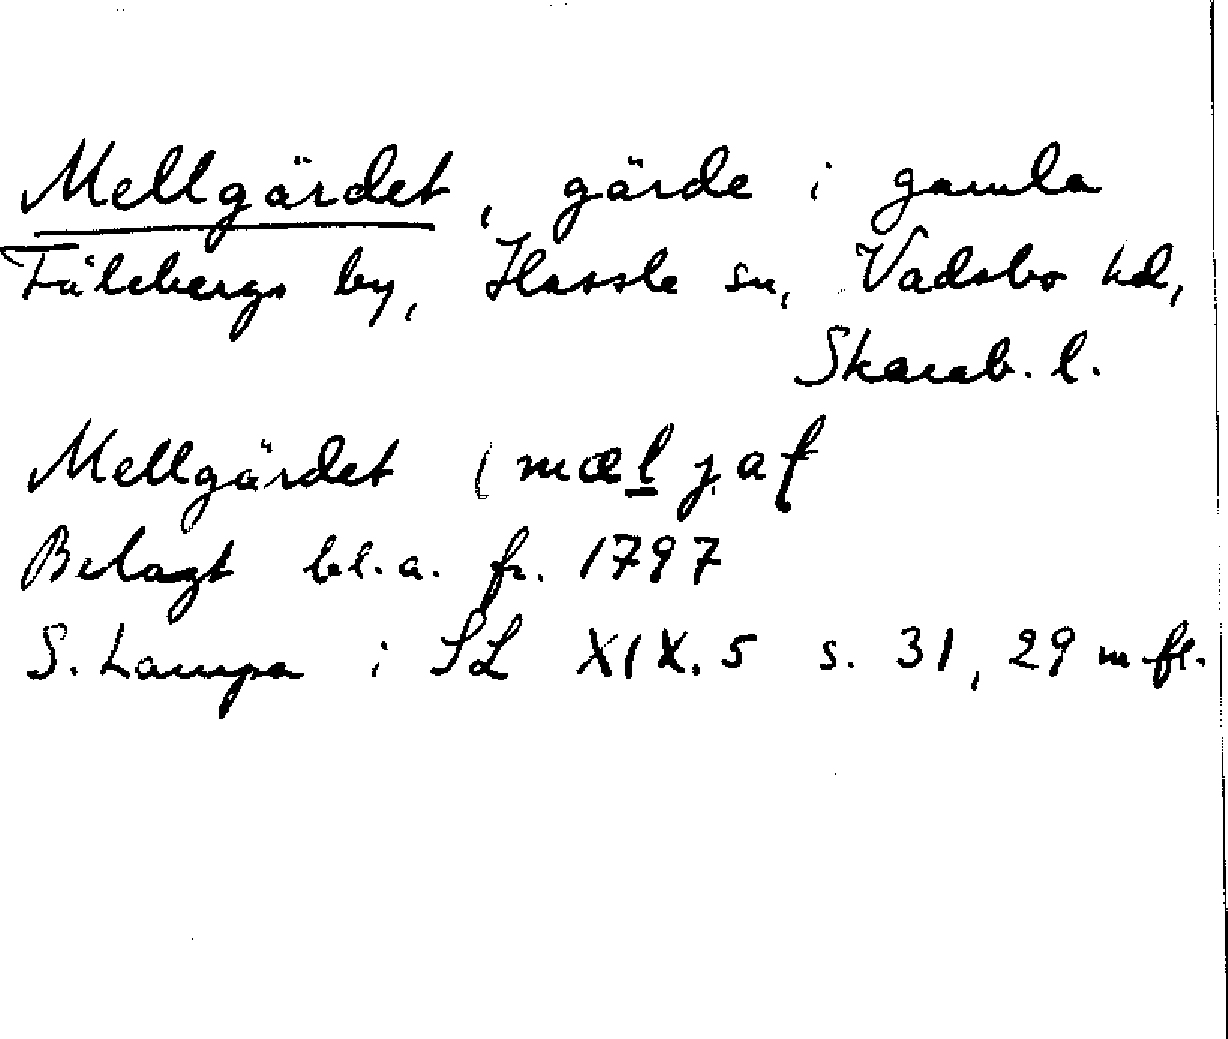 Mellgärdet, gärde i gamla
Fälebergs by, Hassle sn, Vadsbo hd,
Skarab. l.
Mellgärdet (mæl jaf
Belagt bl.a. fr. 1797
S. Lampa i SL XIX. 5 s. 31, 29 m fl.